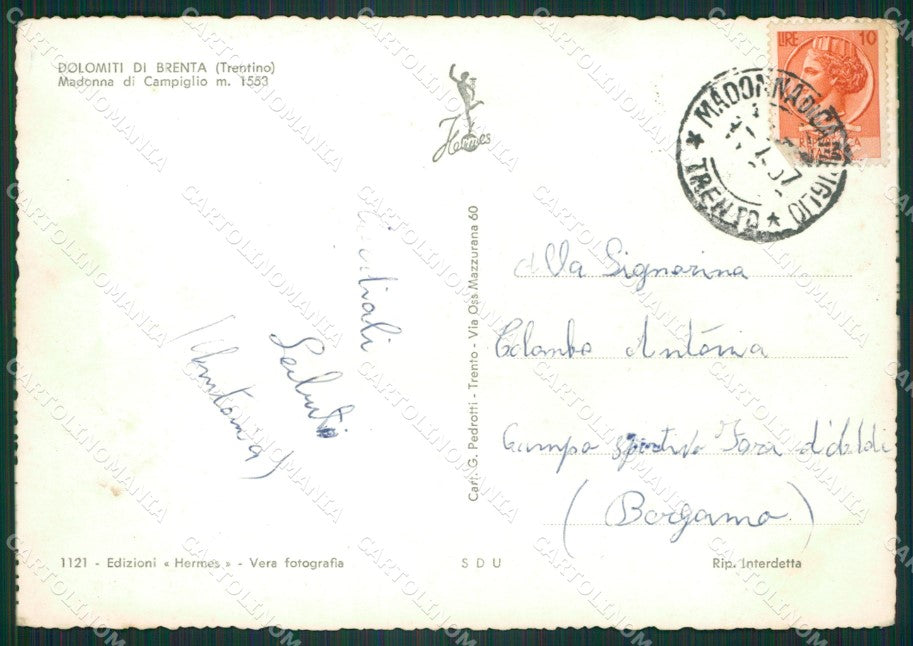 DOLOMITI DI BRENTA (Trentino)
Madonna di Campiglio m. 1553
Hermes
LIRE 10
MADONNA DI CAMPIGLIO
* TRENTO *
Cordiali
Saluti
(Antonia)
Cart. G. Pedrotti - Trento - Via Oss Mazzurana 60
Alla Signorina
Colombo Antonia
Campo sportivo Fara d'
(Bergamo)
1121 - Edizioni « Hermes » - Vera fotografia
S D U
Rip. Interdetta
CARTOLINOMANIA